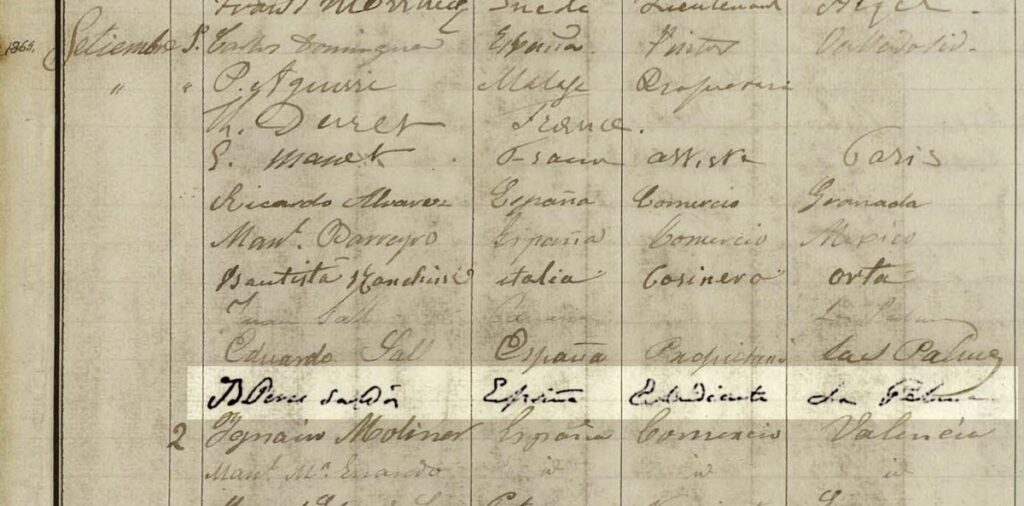 Suede Lieutenant Alger
1865. Setiembre 1º Carlos Dominguez España Pintor Valladolid.
" " P. Aguirre Malaga Propietario
Th. Duret France.
E. Manet France artiste Paris
Ricardo Alvarez España Comercio Granada
Manl. Barreyro España Comercio Mexico
Bautista italia Cosinero orta
Juan Sall España La Palma
Eduardo Sall España Propietario las Palmas
B Perez Galdós España Estudiante La Palma
2 Ignacio Moliner España Comercio Valencia
Manl. Mª id id id